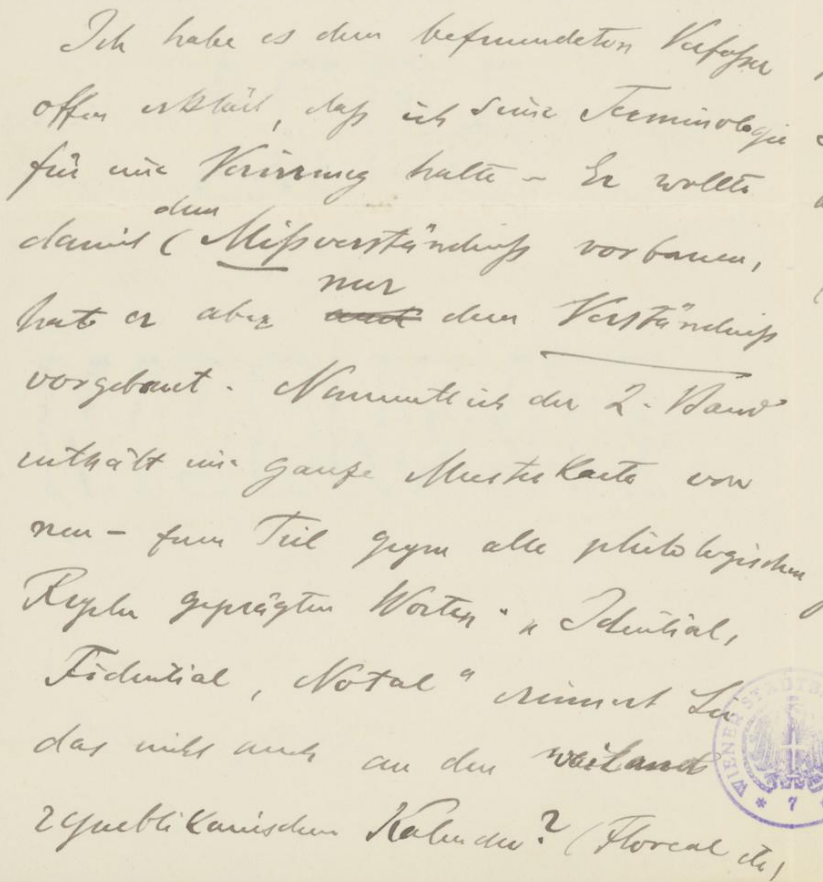 Ich habe es dem befreundeten Verfasser
offen erklärt, daß ich seine Terminologie
für eine Verirrung halte – Er wollte
damit (dem Mißverständniß vorbauen,
hat er aber nur dem Verständniß
vorgebaut. Namentlich der 2. Band
enthält eine ganze Musterkarte von
neu – zum Teil gegen alle philologischen
Regeln geprägten Worten. „Idential,
Fidential, Notal“ erinnert Sie
das nicht auch an den weiland
republikanischen Kalender? (Floreal etc)
WIENER STADTB
* 7 *